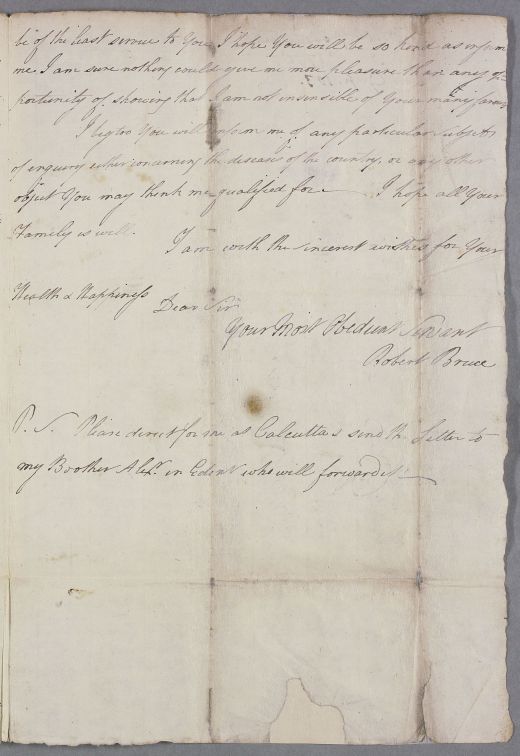 be of the least service to You, I hope You will be so kind as inform
me. I am sure nothing could give me more pleasure than any op=
portunity of showing that I am not insensible of Your many favors
I beg too You will inform me of any particular subjects
of enquiry either concerning the diseases of the country, or any other
object You may think me qualified for — I hope all Your
Family is well.
I am with the sincerest wishes for Your
Health & Happiness
Dear Sir
Your Most Obedient Servant
Robert Bruce
P. S. Please direct for me at Calcutta & send the Letter to
my Brother Alexr. in Edinr. who will forward it —